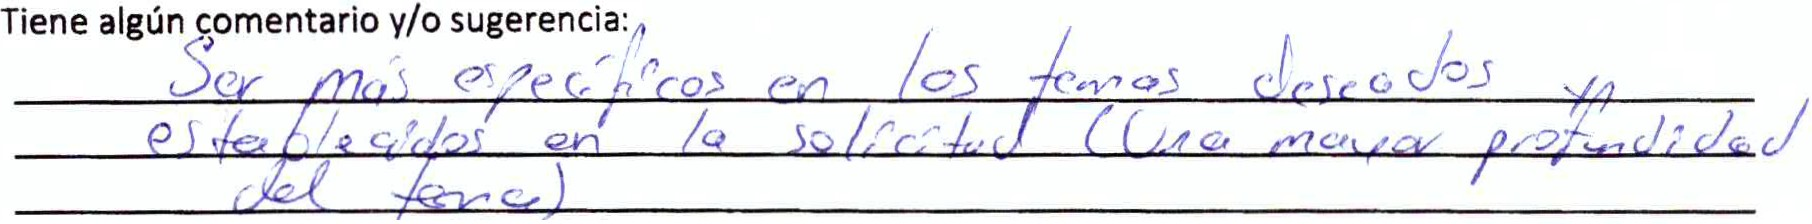 Tiene algún comentario y/o sugerencia:
Ser más específicos en los temas deseados y
establecidos en la solicitud (Una mayor profundidad
del tema)